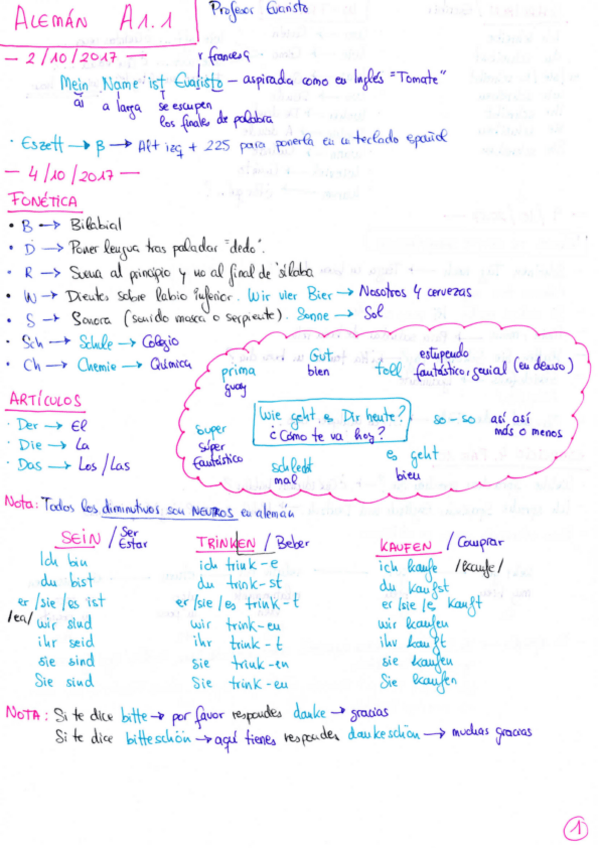 ALEMÁN A1.1
Profesor Evaristo
— 2/10/2017 —
r francesa
Mein Name ist Evaristo – aspirada como en Inglés "Tomate"
ai a larga se escupen
los finales de palabra
· Eszett → β → Alt izq + 225 para ponerla en un teclado español
— 4/10/2017 —
FONÉTICA
• B → Bilabial
• D → Poner lengua tras paladar "dedo".
• R → Suena al principio y no al final de sílaba
• W → Dientes sobre labio inferior. Wir vier Bier → Nosotros 4 cervezas
• S → Sonora (sonido mosca o serpiente). Sonne → Sol
• Sch → Schule → Colegio
• Ch → Chemie → Química
prima
guay
Gut
bien
toll
estupendo
fantástico, genial (en deuso)
Wie geht es Dir heute?
¿Cómo te va hoy?
so-so
así así
más o menos
super
súper
fantástico
schlecht
mal
es geht
bien
ARTÍCULOS
· Der → El
· Die → La
· Das → Los/Las
Nota: Todos los diminutivos son NEUTROS en alemán
SEIN / Ser
Estar
Ich bin
du bist
er/sie/es ist
/ea/ wir sind
ihr seid
sie sind
Sie sind
TRINKEN / Beber
ich trink-e
du trink-st
er/sie/es trink-t
wir trink-en
ihr trink-t
sie trink-en
Sie trink-en
KAUFEN / Comprar
ich kaufe /kaufe/
du kaufst
er/sie/es kauft
wir kaufen
ihr kauft
sie kaufen
Sie kaufen
NOTA: Si te dice bitte → por favor respondes danke → gracias
Si te dice bitteschön → aquí tienes respondes dankeschön → muchas gracias
1